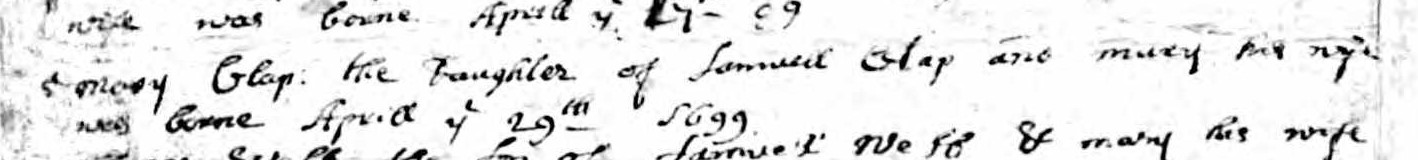 wife was borne Aprill yͤ 27 89
Mary Clap: the Daughter of Samuell Clap and mary his wife
was borne Aprill yͤ 29th 1699
the son of Samuel Webb & mary his wife